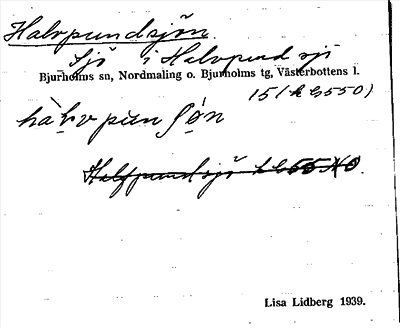 Halvpundsjön.
Sjö i Halvpundsjö
Bjurholms sn, Nordmaling o. Bjurholms tg, Västerbottens l.
hàlvpunʃø̀n
Halfpundsjö
Lisa Lidberg 1939.